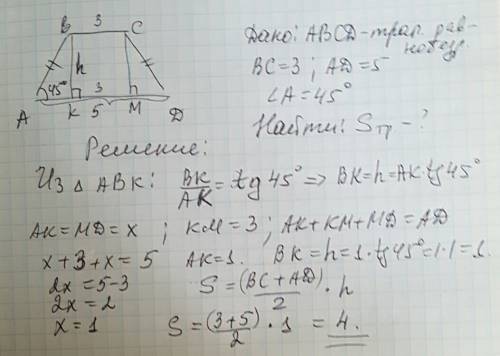 B 3 C
h
45° 3
A K 5 M D
Дано: ABCD-трап. рав-
нобедр.
BC=3 ; AD=5
∠A=45°
Найти: Sтр - ?
Решение:
Из △ ABK: BK/AK = tg 45° => BK=h=AK·tg 45°
AK=MD=x ; KM=3; AK+KM+MD=AD
x+3+x=5 AK=1. BK=h=1·tg45°=1·1=1.
2x=5-3 S=(BC+AD)/2 · h
2x=2
x=1 S=(3+5)/2 · 1 = 4.